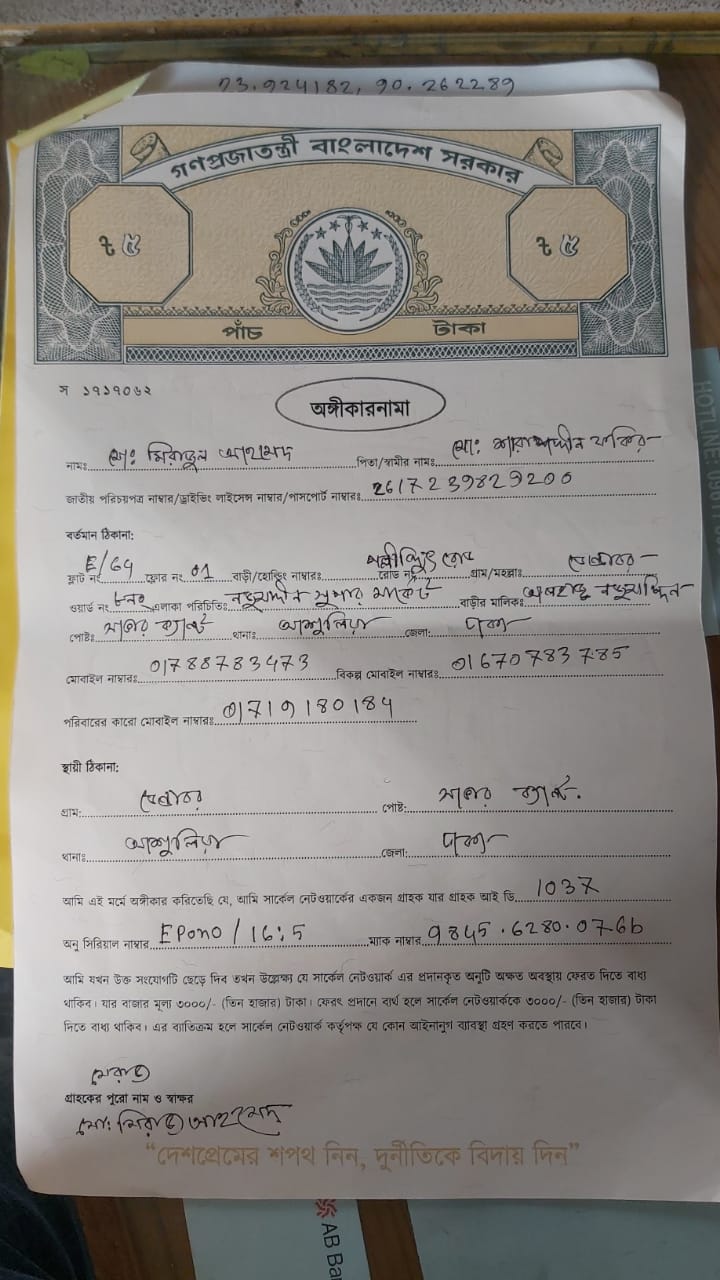 23.924182, 90.262289
গণপ্রজাতন্ত্রী বাংলাদেশ সরকার
৳ ৫ ৳ ৫
পাঁচ টাকা
স ১৭১৭০৬২
অঙ্গীকারনামা
নামঃ মোঃ মিরাজুল আহমেদ পিতা/স্বামীর নামঃ মোঃ ফকির
জাতীয় পরিচয়পত্র নাম্বার/ড্রাইভিং লাইসেন্স নাম্বার/পাসপোর্ট নাম্বারঃ 2617239829200
বর্তমান ঠিকানা:
ফ্লাট নং E/64 ফ্লোর নং 01 বাড়ী/হোল্ডিং নাম্বারঃ রোড নং পল্লীবিদ্যুৎ রোড গ্রাম/মহল্লাঃ
ওয়ার্ড নং এলাকা পরিচিতিঃ সুপার মার্কেট বাড়ীর মালিকঃ
পোষ্টঃ থানাঃ আশুলিয়া জেলা: ঢাকা
মোবাইল নাম্বারঃ 01788783473 বিকল্প মোবাইল নাম্বারঃ 01670783785
পরিবারের কারো মোবাইল নাম্বারঃ 01719180184
স্থায়ী ঠিকানা:
গ্রাম: পোষ্ট:
থানাঃ আশুলিয়া জেলা: ঢাকা
আমি এই মর্মে অঙ্গীকার করিতেছি যে, আমি সার্কেল নেটওয়ার্কের একজন গ্রাহক যার গ্রাহক আই ডি 1037
অনু সিরিয়াল নাম্বার EPONO/16:5 ম্যাক নাম্বার 9845.6280.076b
আমি যখন উক্ত সংযোগটি ছেড়ে দিব তখন উল্লেক্ষ্য যে সার্কেল নেটওয়ার্ক এর প্রদানকৃত অনুটি অক্ষত অবস্থায় ফেরত দিতে বাধ্য
থাকিব। যার বাজার মূল্য ৩০০০/- (তিন হাজার) টাকা। ফেরৎ প্রদানে ব্যর্থ হলে সার্কেল নেটওয়ার্ককে ৩০০০/- (তিন হাজার) টাকা
দিতে বাধ্য থাকিব। এর ব্যাতিক্রম হলে সার্কেল নেটওয়ার্ক কর্তৃপক্ষ যে কোন আইনানুগ ব্যাবস্থা গ্রহণ করতে পারবে।
মেরাজ
গ্রাহকের পুরো নাম ও স্বাক্ষর
মোঃ মিরাজ আহমেদ
“দেশপ্রেমের শপথ নিন, দুর্নীতিকে বিদায় দিন”
HOTLINE:
AB Ba